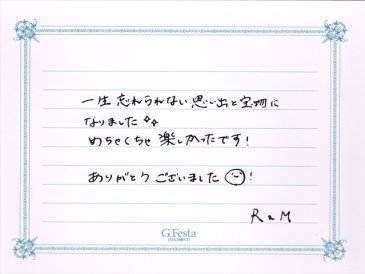 一生忘れられない思い出と宝物に
なりました✧✧
めちゃくちゃ楽しかったです！
ありがとうございました☺！
R&M
G.Festa
DIAMOND